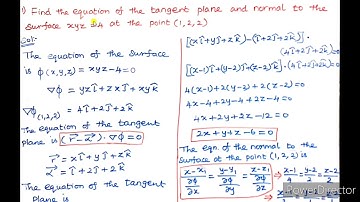 1) Find the equation of the tangent plane and normal to the
surface xyz = 4 at the point (1,2,2)
Sol:-
The equation of the surface
is φ(x,y,z) = xyz-4=0
∇φ = yzî + zxĵ + xyk̂
∇φ(1,2,2) = 4î+2ĵ+2k̂
The equation of the tangent
plane is (r⃗-a⃗)·∇φ=0
r⃗ = xî+yĵ+zk̂
a⃗ = î+2ĵ+2k̂
The equation of the tangent
plane is
[(xî+yĵ+zk̂)-(î+2ĵ+2k̂)]·
(4î+2ĵ+2k̂)=0
[(x-1)î+(y-2)ĵ+(z-2)k̂]·(4î+2ĵ+2k̂)=0
4(x-1)+2(y-2)+2(z-2)=0
4x-4+2y-4+2z-4=0
4x+2y+2z-12=0
2x+y+z-6=0
The eqn. of the normal to the
surface at the point (1,2,2) is
x-x₁/∂φ/∂x = y-y₁/∂φ/∂y = z-z₁/∂φ/∂z
⇒ x-1/4 = y-2/2 = z-2/2
PowerDirector